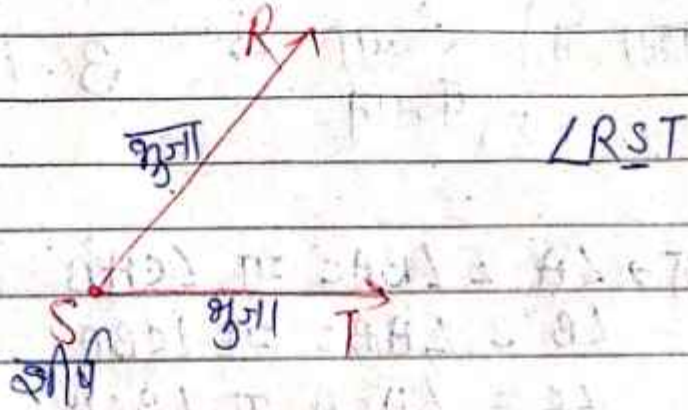 R
भुजा
∠RST
S भुजा T
शीर्ष